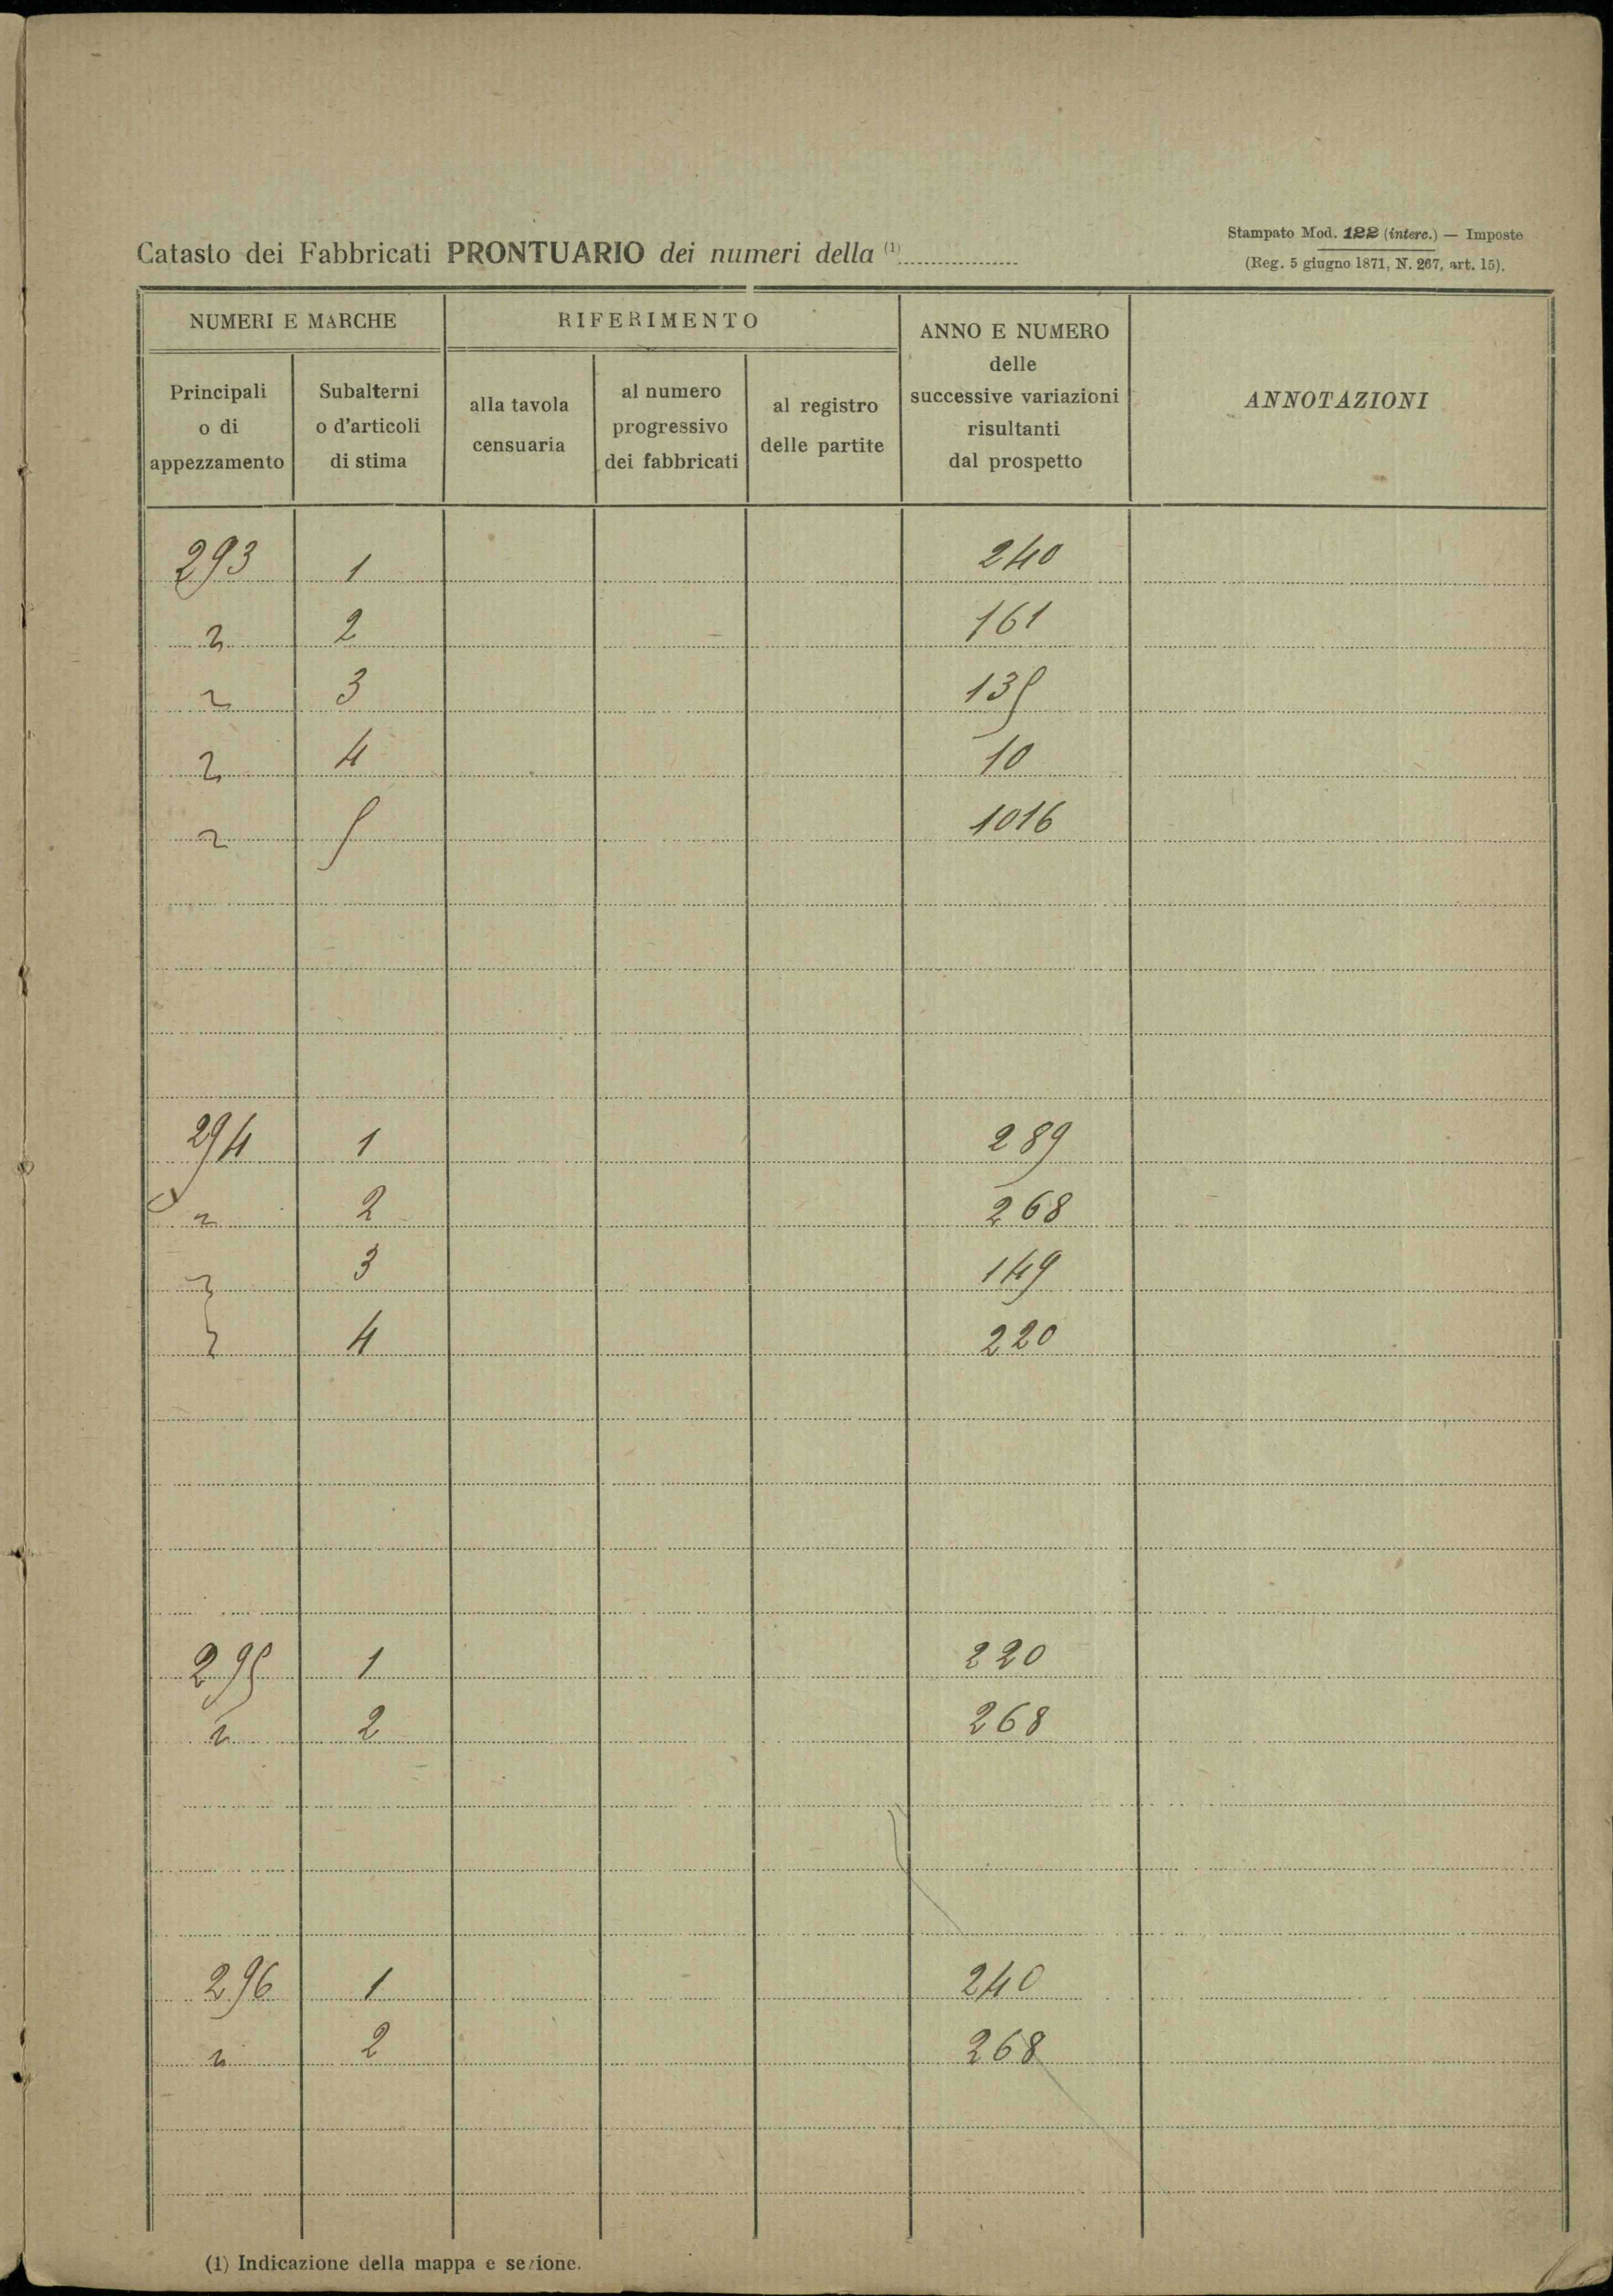 Catasto dei Fabbricati PRONTUARIO dei numeri della (1)
Stampato Mod. 122 (interc.) — Imposte
(Reg. 5 giugno 1871, N. 267, art. 15).
NUMERI E MARCHE
RIFERIMENTO
ANNO E NUMERO
delle
successive variazioni
risultanti
dal prospetto
ANNOTAZIONI
Principali
o di
appezzamento
Subalterni
o d'articoli
di stima
alla tavola
censuaria
al numero
progressivo
dei fabbricati
al registro
delle partite
293 1 240
" 2 161
" 3 135
" 4 10
" 5 1016
294 1 289
" 2 268
" 3 149
" 4 220
295 1 220
" 2 268
296 1 240
" 2 268
(1) Indicazione della mappa e sezione.